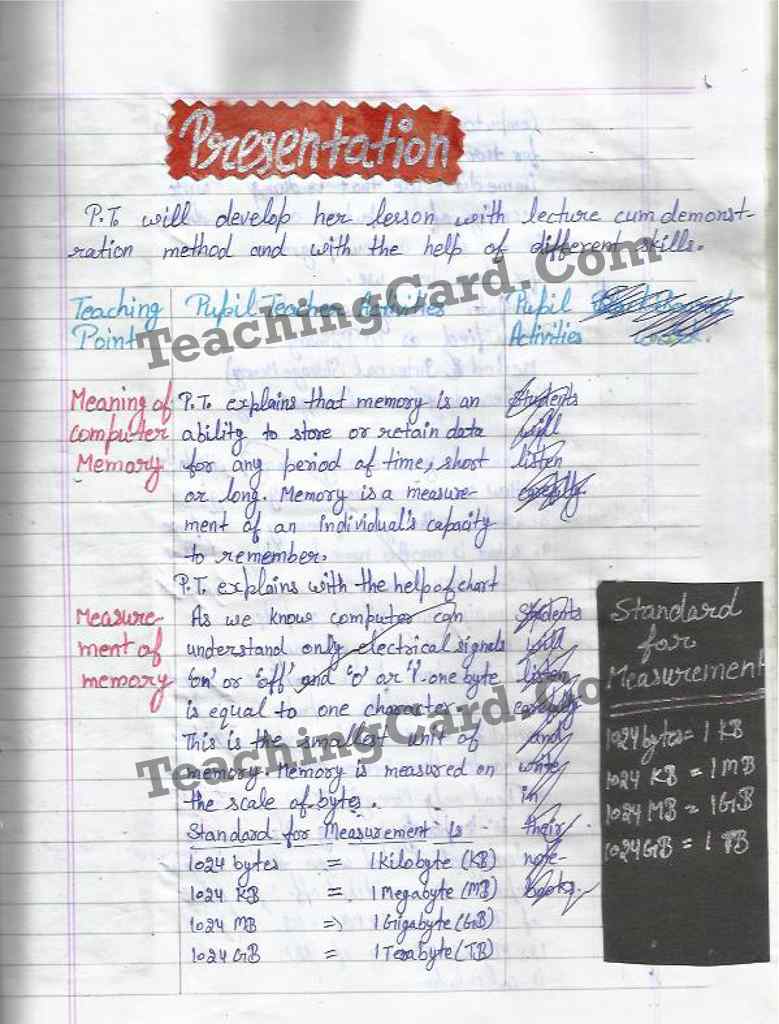 Presentation
P.T. will develop her lesson with lecture cum demonst-
ration method and with the help of different skills.
TeachingCard.Com
Teaching Point
Pupil Teacher Activities
Pupil Activities
Meaning of
computer
Memory
P.T. explains that memory is an
ability to store or retain data
for any period of time, short
or long. Memory is a measure-
ment of an individual's capacity
to remember.
Students
will
listen
carefully.
P.T. explains with the help of chart
Measure-
ment of
memory
As we know computer can
understand only electrical signals
'on' or 'off' and '0' or '1'. one byte
is equal to one character.
This is the smallest unit of
memory. Memory is measured on
the scale of bytes.
Standard for Measurement is
1024 bytes = 1 Kilobyte (KB)
1024 KB = 1 Megabyte (MB)
1024 MB => 1 Gigabyte (GB)
1024 GB = 1 Terabyte (TB)
Students
will
listen
carefully
and
write
in
their
note-
books.
TeachingCard.Co
Standard
for
Measurement
1024 bytes = 1 KB
1024 KB = 1 MB
1024 MB = 1 GB
1024 GB = 1 TB